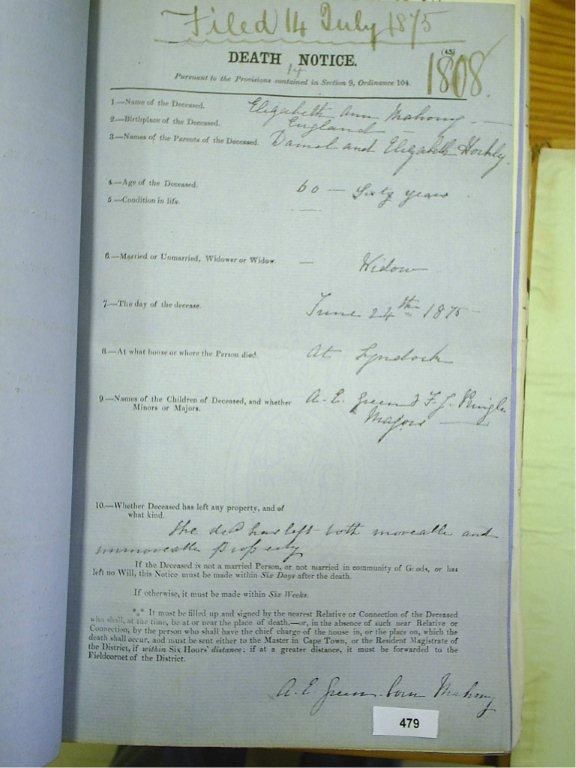 Filed 14 July 1875
(45)
DEATH NOTICE.
1808.
14
Pursuant to the Provisions contained in Section 9, Ordinance 104.
1.—Name of the Deceased. Elizabeth Ann Mahony
2.—Birthplace of the Deceased. England
3.—Names of the Parents of the Deceased. Daniel and Elizabeth Hockly
4.—Age of the Deceased. 60 — Sixty years
5.—Condition in life. —
6.—Married or Unmarried, Widower or Widow. — Widow
7.—The day of the decease. June 24th 1875
8.—At what house or where the Person died. At Lyndoch
9.—Names of the Children of Deceased, and whether A. E. Green & F. J. Pringle
Minors or Majors. Majors —
10.—Whether Deceased has left any property, and of
what kind.
She dec'd has left both moveable and
immoveable property
If the Deceased is not a married Person, or not married in community of Goods, or has
left no Will, this Notice must be made within Six Days after the death.
If otherwise, it must be made within Six Weeks.
*** It must be filled up and signed by the nearest Relative or Connection of the Deceased
who shall, at the time, be at or near the place of death,—or, in the absence of such near Relative or
Connection, by the person who shall have the chief charge of the house in, or the place on, which the
death shall occur, and must be sent either to the Master in Cape Town, or the Resident Magistrate of
the District, if within Six Hours' distance: if at a greater distance, it must be forwarded to the
Fieldcornet of the District.
A. E. Green born Mahony
479